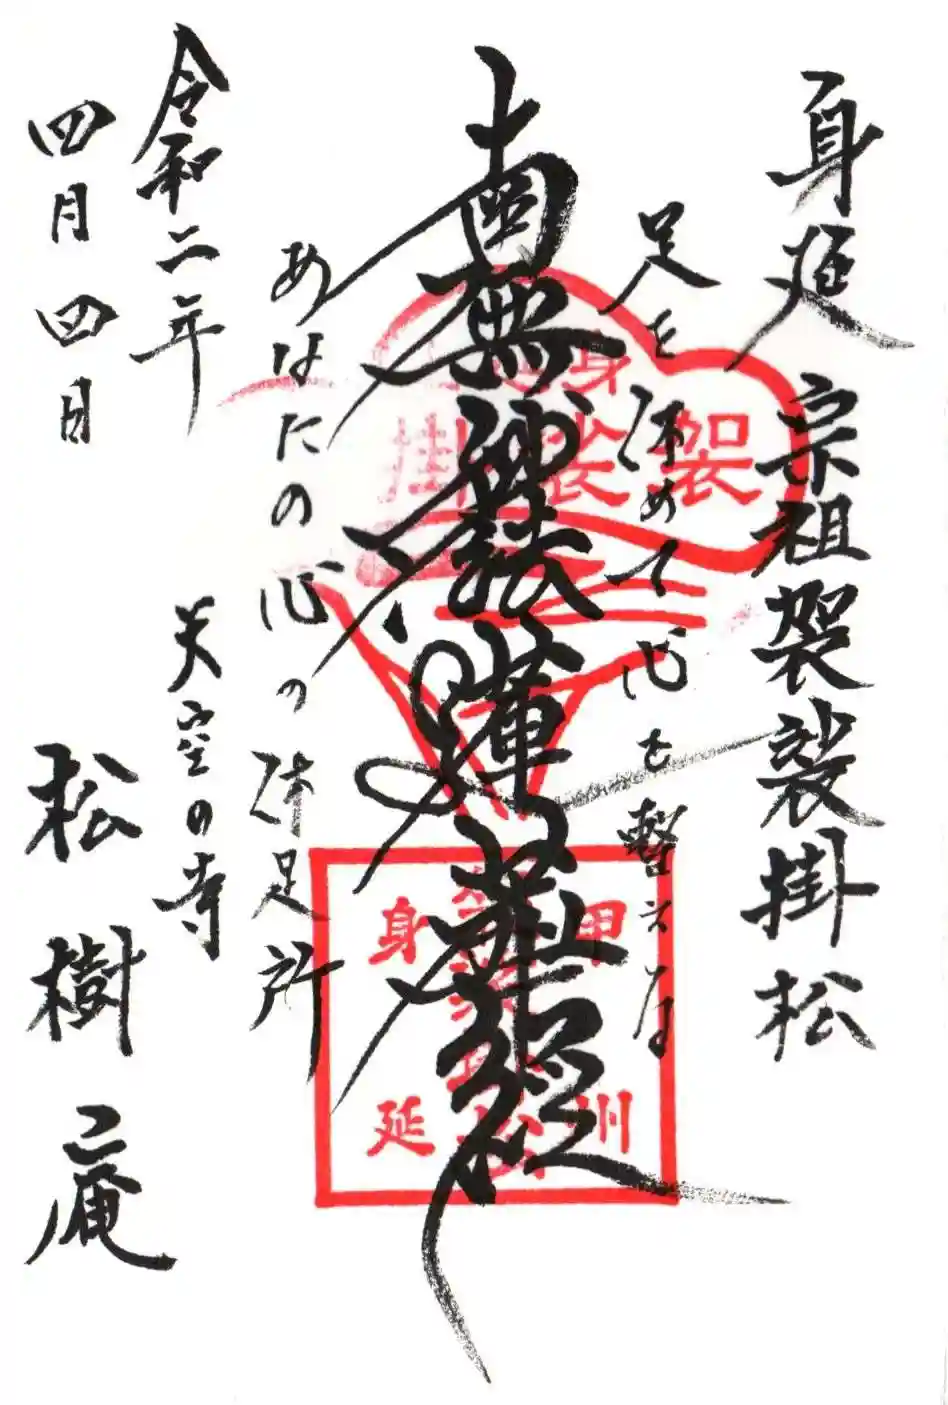 身延 宗祖袈裟掛松
足を休めて心も暫え居
南無妙法蓮華経
あなたの心の休足所
令和二年
四月四日
天空の寺
松樹庵
身延
袈裟掛
甲州
身延
袈裟掛松